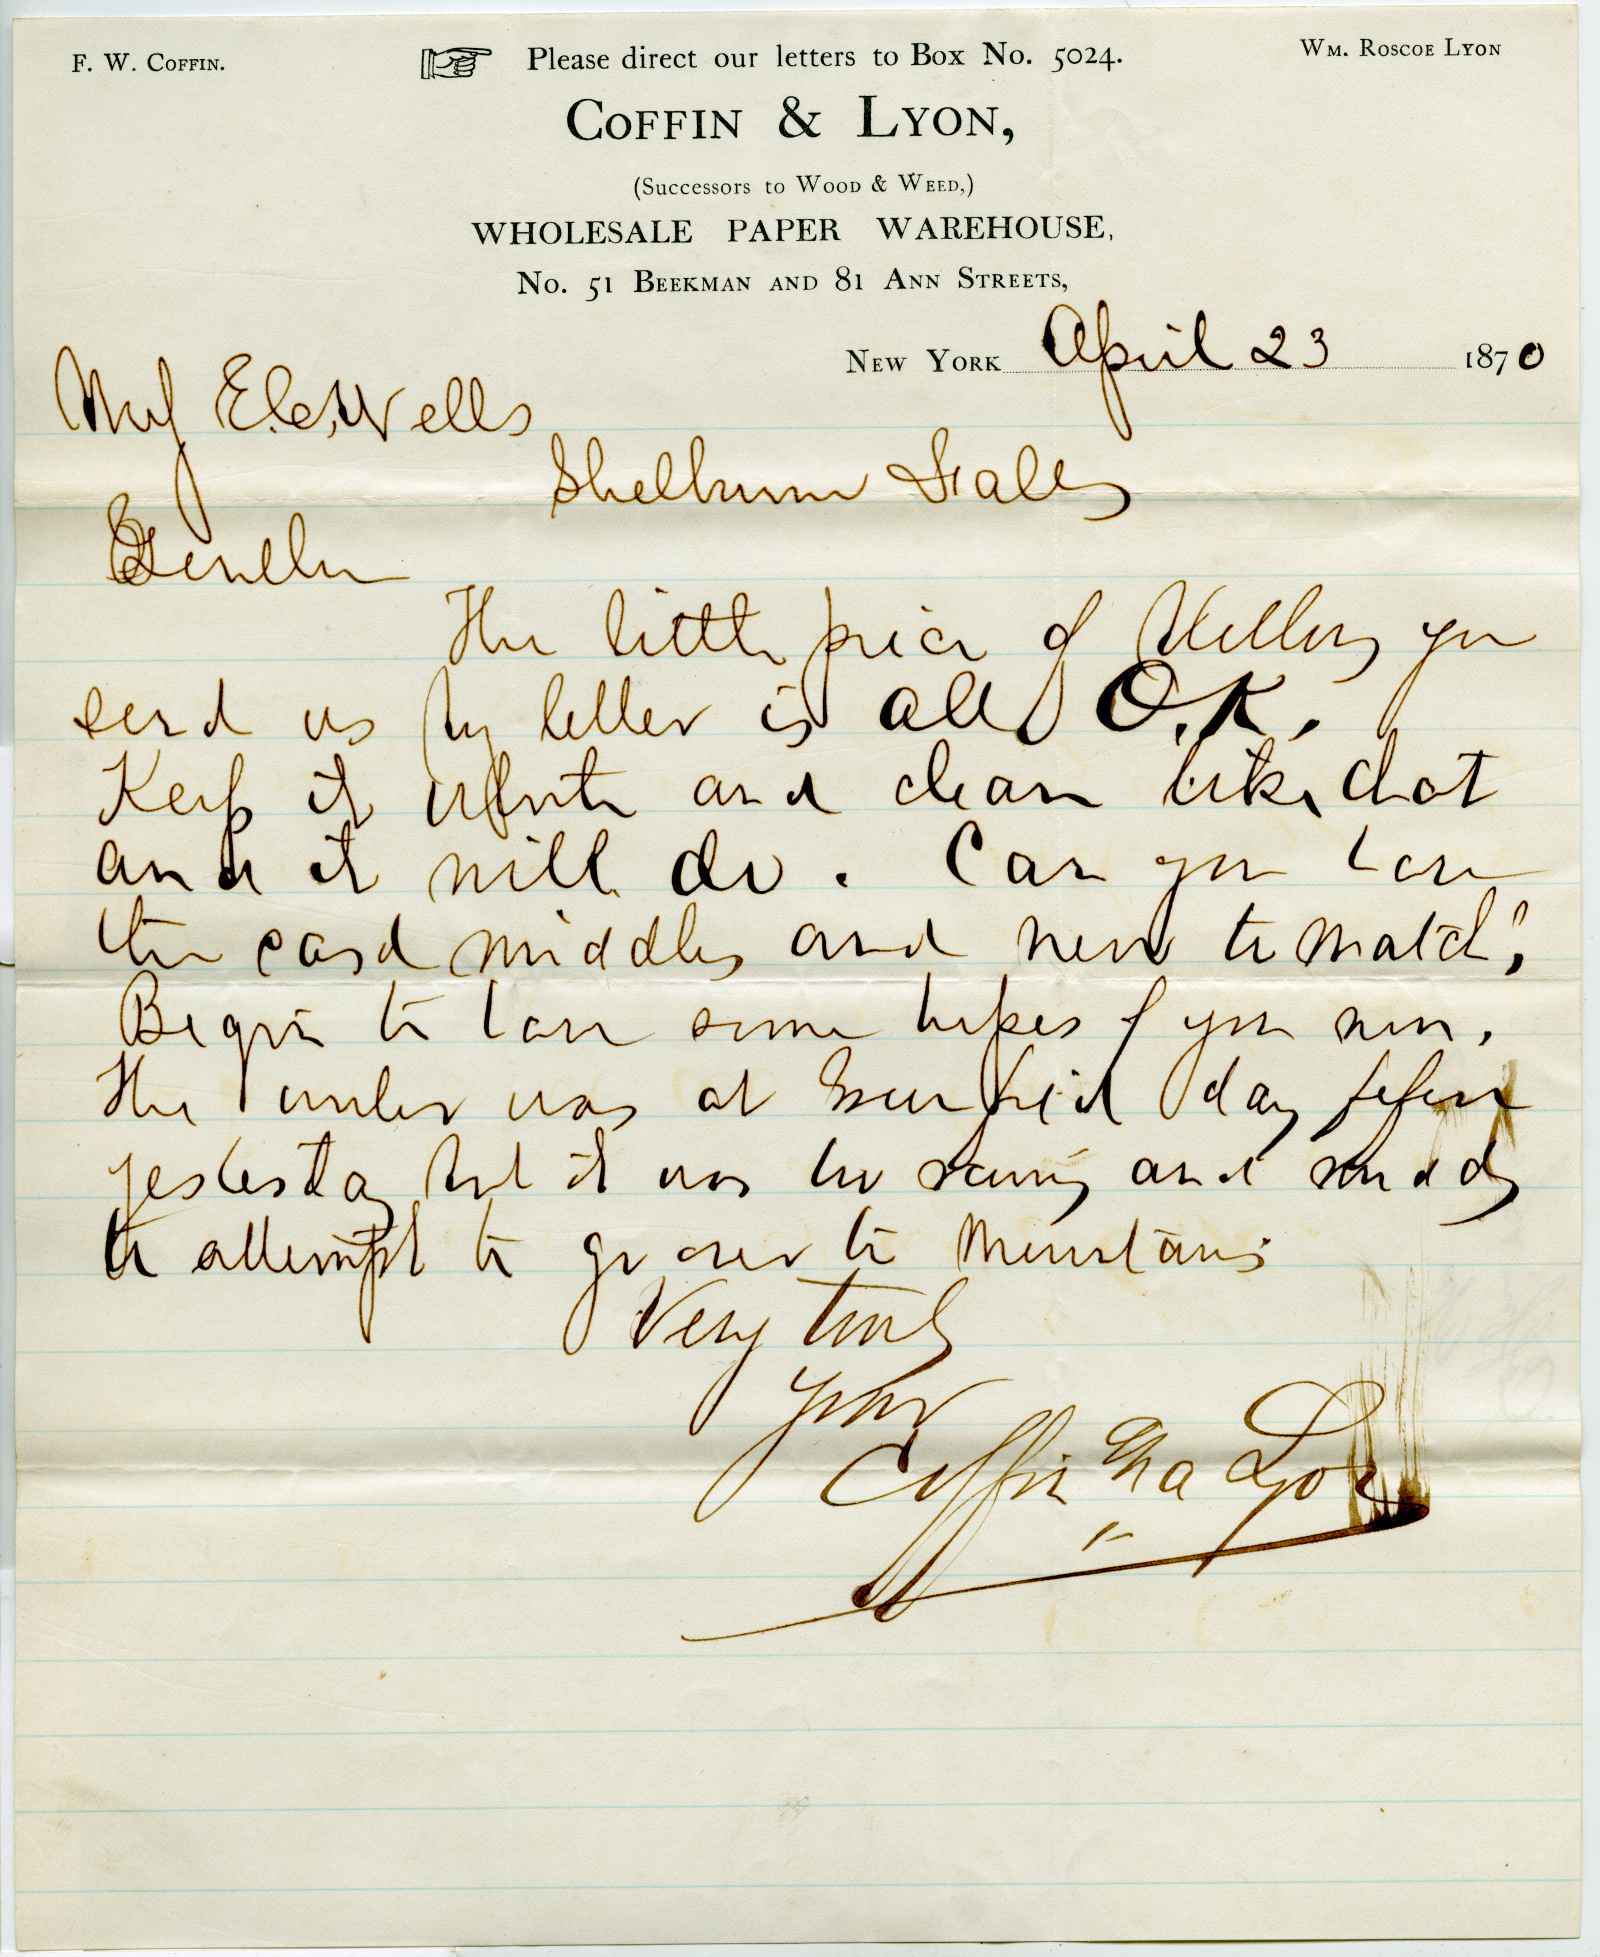 F. W. Coffin.
Please direct our letters to Box No. 5024.
Wm. Roscoe Lyon
Coffin & Lyon,
(Successors to Wood & Weed,)
WHOLESALE PAPER WAREHOUSE,
No. 51 Beekman and 81 Ann Streets,
New York April 23 1870
E. C. Wells
Shelburne Falls
Gentlm
The little piece of you
send us by letter is all O.K.
Keep it white and clean like that
and it will do. Can you have
the card middles and news to match?
Begin to have some hopes of you now.
The was at day before
yesterday but it was too rainy and muddy
to attempt to go over to Mountains
Very truly
Yours
Coffin & Lyon